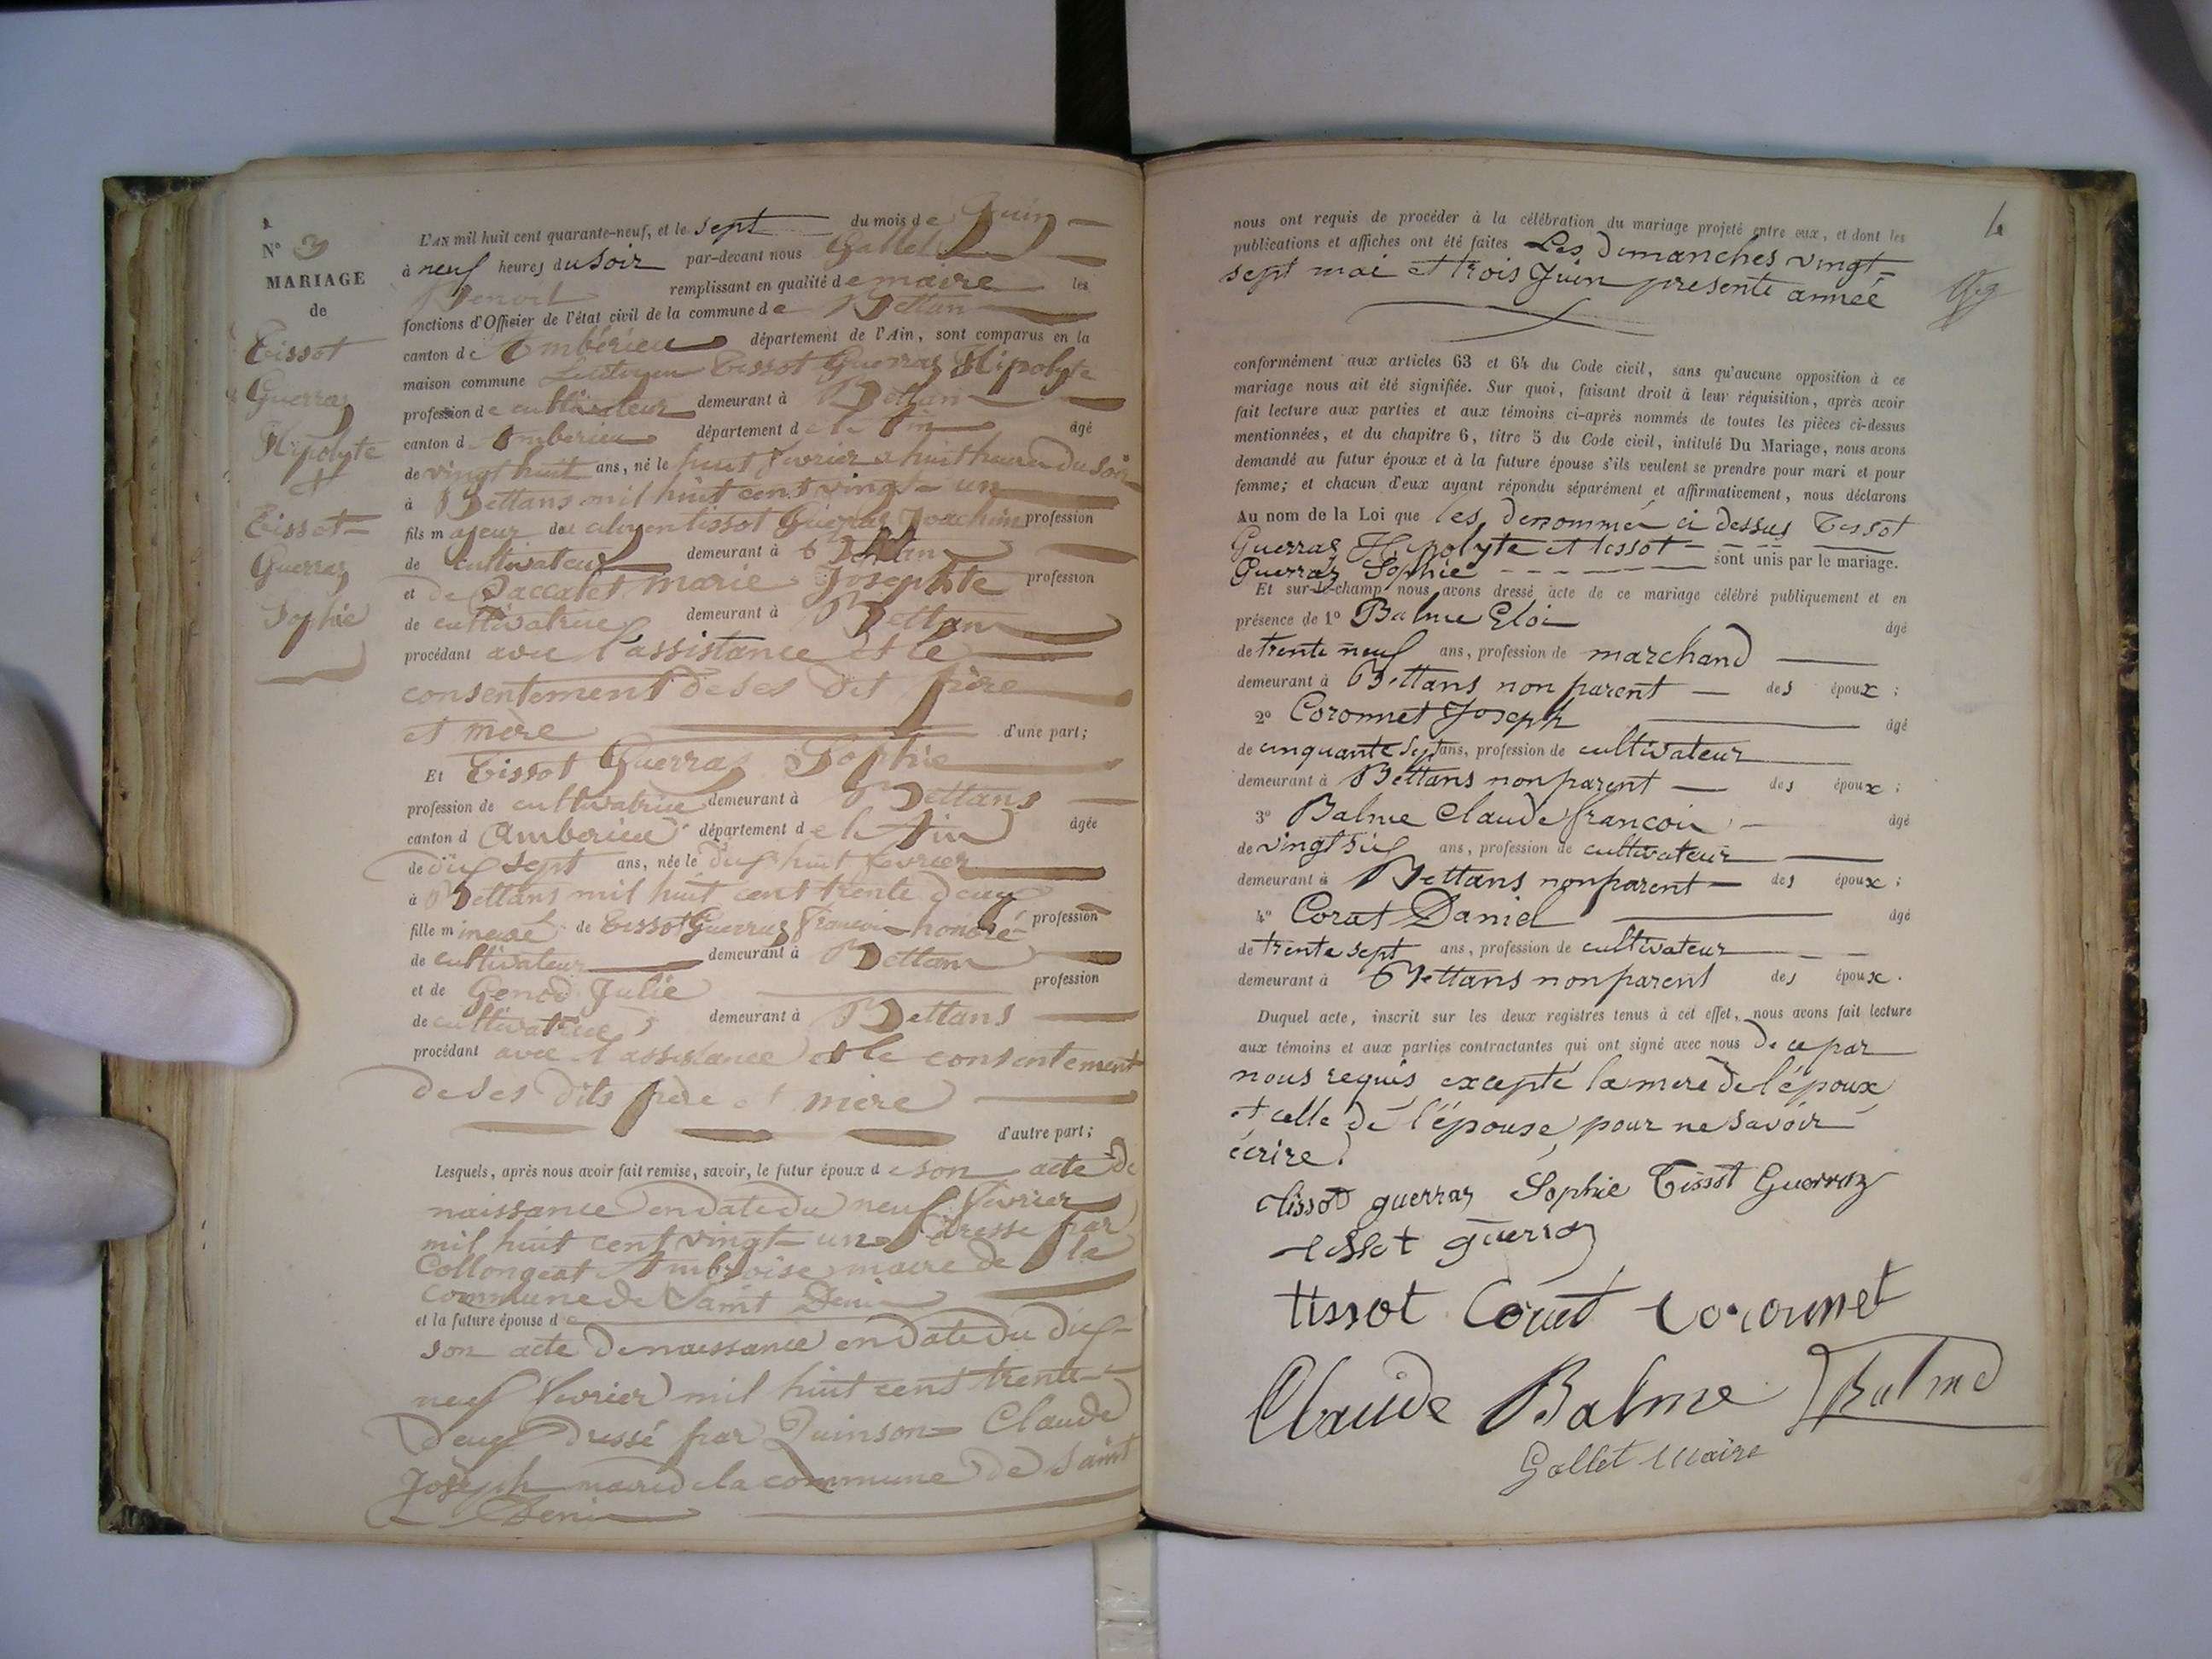 N° 3
MARIAGE
de
Tissot
Guerraz
Hipolyte
et
Tissot-
Guerraz
Sophie
L'AN mil huit cent quarante-neuf, et le sept du mois de Juin
à neuf heures du soir par-devant nous Gallet
Benoit remplissant en qualité de maire les
fonctions d'Officier de l'état civil de la commune de Bettan
canton de Ambérieu département de l'Ain, sont comparus en la
maison commune Le citoyen Tissot Guerraz Hipolyte
profession de cultivateur demeurant à Bettan
canton d Amberieu département de l'Ain âgé
de vingt huit ans, né le huit fevrier a huit heures du soir
à Bettans mil huit cent vingt-un
fils majeur du citoyen tissot Guerraz Joachim profession
de cultivateur demeurant à Bettan
et de Saccatet marie Josephte profession
de cultivatrice demeurant à Bettan
procédant avec l'assistance et le
consentement de ses dit père
et mère d'une part;
Et Tissot Guerraz Sophie
profession de cultivatrice demeurant à Bettans
canton d Amberieu département de l'Ain âgée
de dix sept ans, née le dix huit fevrier
à Bettans mil huit cent trente deux
fille mineure de Tissot Guerraz françois-honoré profession
de cultivateur demeurant à Bettan
et de Genod Julie profession
de cultivatrice demeurant à Bettans
procédant avec l'assistance et le consentement
de ses dits père et mère
d'autre part;
Lesquels, après nous avoir fait remise, savoir, le futur époux de son acte de
naissance en date du neuf fevrier
mil huit cent vingt-un dressé par
Collongeat Ambroise maire de la
Commune de Saint Denis
et la future épouse d
son acte de naissance en date du dix-
neuf fevrier mil huit cent trente-
deux dressé par Quinson Claude
Joseph maire de la commune de Saint
Denis
4
nous ont requis de procéder à la célébration du mariage projeté entre eux, et dont les
publications et affiches ont été faites Les Dimanches vingt-
sept mai et trois Juin presente année
conformément aux articles 63 et 64 du Code civil, sans qu'aucune opposition à ce
mariage nous ait été signifiée. Sur quoi, faisant droit à leur réquisition, après avoir
fait lecture aux parties et aux témoins ci-après nommés de toutes les pièces ci-dessus
mentionnées, et du chapitre 6, titre 5 du Code civil, intitulé Du Mariage, nous avons
demandé au futur époux et à la future épouse s'ils veulent se prendre pour mari et pour
femme; et chacun d'eux ayant répondu séparément et affirmativement, nous déclarons
Au nom de la Loi que les denommés ci dessus Tissot
Guerraz Hipolyte et tissot-
Guerraz Sophie sont unis par le mariage.
Et sur-le-champ nous avons dressé acte de ce mariage célébré publiquement et en
présence de 1° Balme Eloi âgé
de trente neuf ans, profession de marchand
demeurant à Bettans non parent des époux;
2° Coronnet Joseph âgé
de cinquante sept ans, profession de cultivateur
demeurant à Bettans non parent des époux;
3° Balme Claude françois âgé
de vingt six ans, profession de cultivateur
demeurant à Bettans non parent des époux;
4° Corat Daniel âgé
de trente sept ans, profession de cultivateur
demeurant à Bettans non parent des époux.
Duquel acte, inscrit sur les deux registres tenus à cet effet, nous avons fait lecture
aux témoins et aux parties contractantes qui ont signé avec nous De ce par
nous requis excepté la mere de l'époux
et celle de l'épouse pour ne savoir
écrire.
tissot guerraz Sophie Tissot Guerraz
tissot guerraz
tissot Corat Coronnet
Claude Balme Balme
Gallet Maire